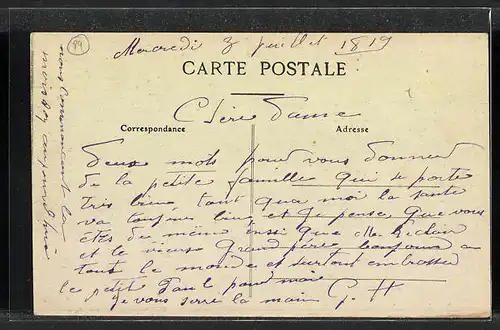 84
Mercredi 3 juillet 1819
CARTE POSTALE
Chère Dame
Correspondance
Adresse
Deux mots pour vous donner
de la petite famille qui se porte
très bien tant qua moi la sante
va toujour bien et je pense que vous
étes du même ensi que Mr
et le vieux Grand père bonjour a
tout le monde et surtout embrasser
le petit Paul pour moi
Je vous serre la main G. H